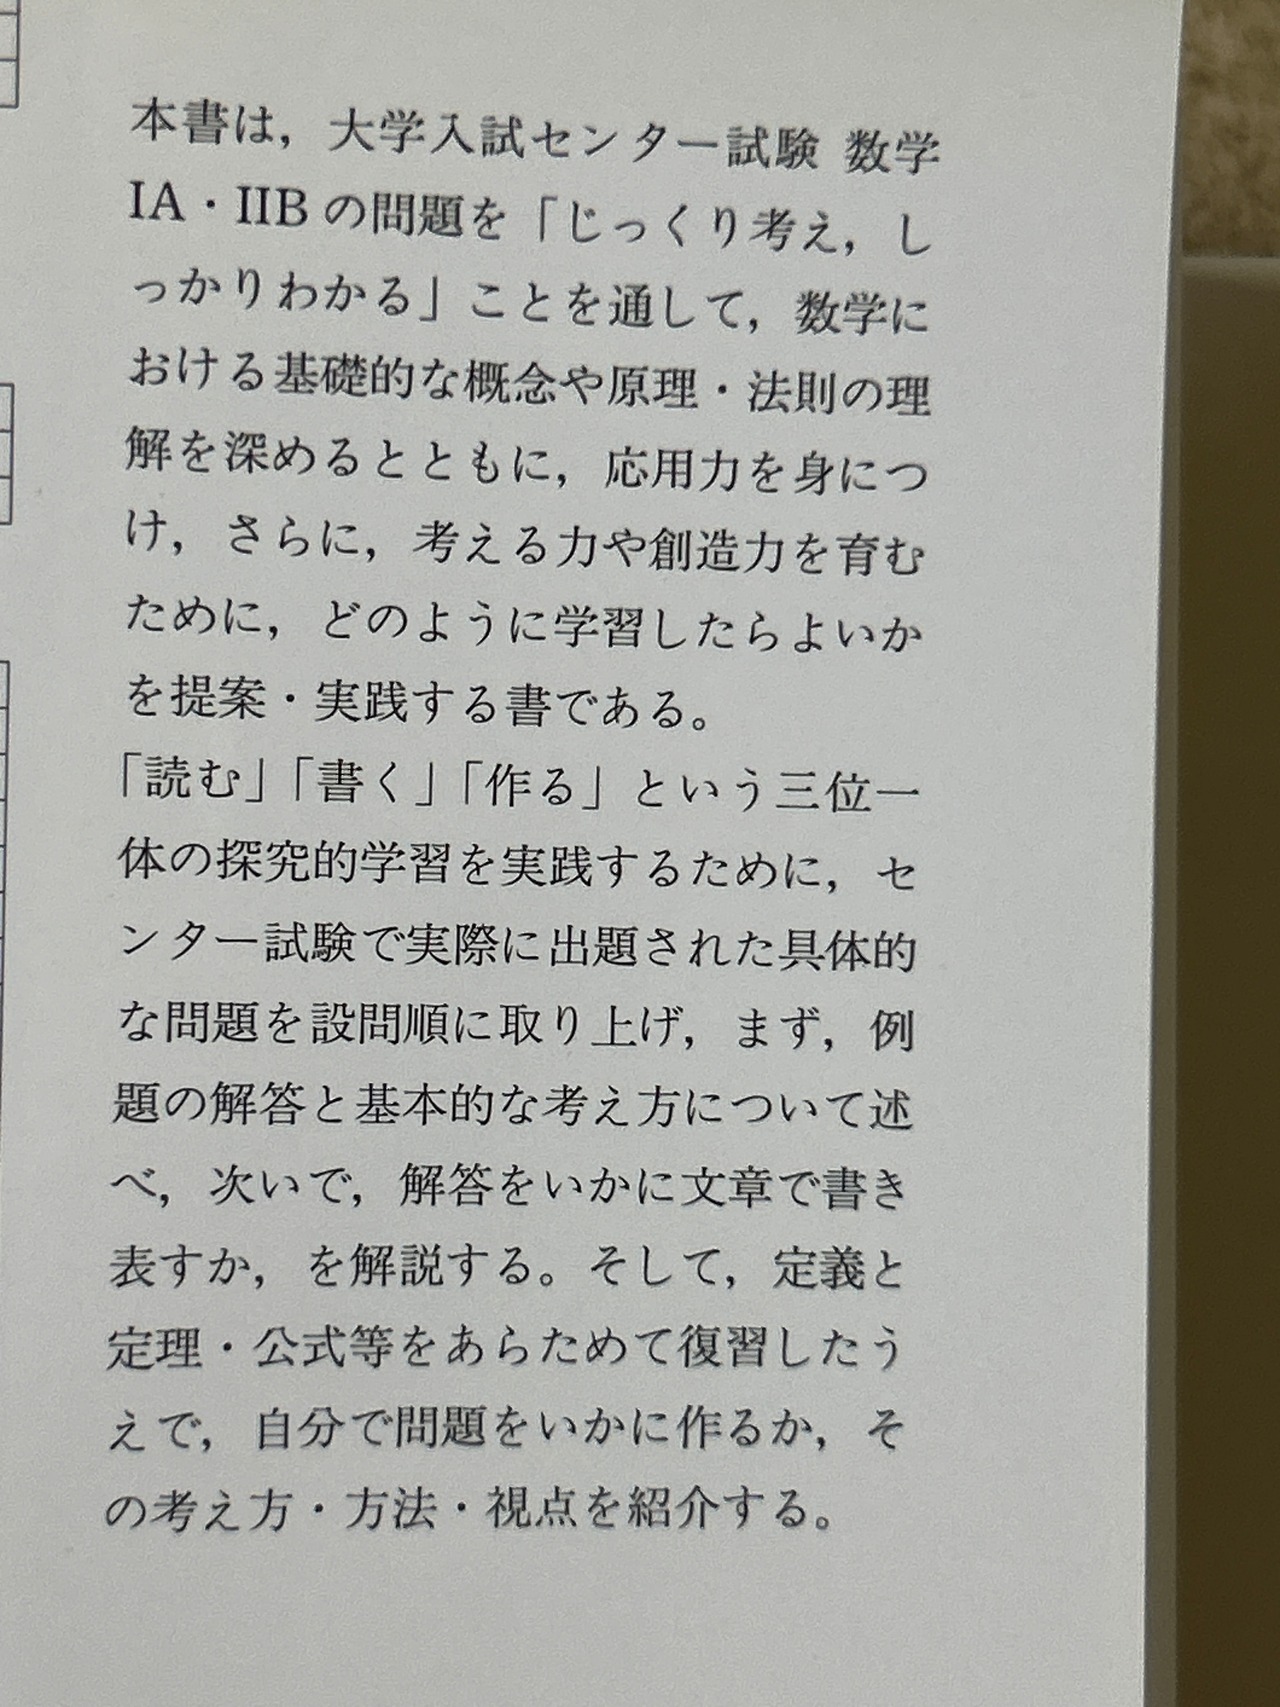 本書は，大学入試センター試験 数学
IA・IIBの問題を「じっくり考え，し
っかりわかる」ことを通して，数学に
おける基礎的な概念や原理・法則の理
解を深めるとともに，応用力を身につ
け，さらに，考える力や創造力を育む
ために，どのように学習したらよいか
を提案・実践する書である。
「読む」「書く」「作る」という三位一
体の探究的学習を実践するために，セ
ンター試験で実際に出題された具体的
な問題を設問順に取り上げ，まず，例
題の解答と基本的な考え方について述
べ，次いで，解答をいかに文章で書き
表すか，を解説する。そして，定義と
定理・公式等をあらためて復習したう
えで，自分で問題をいかに作るか，そ
の考え方・方法・視点を紹介する。